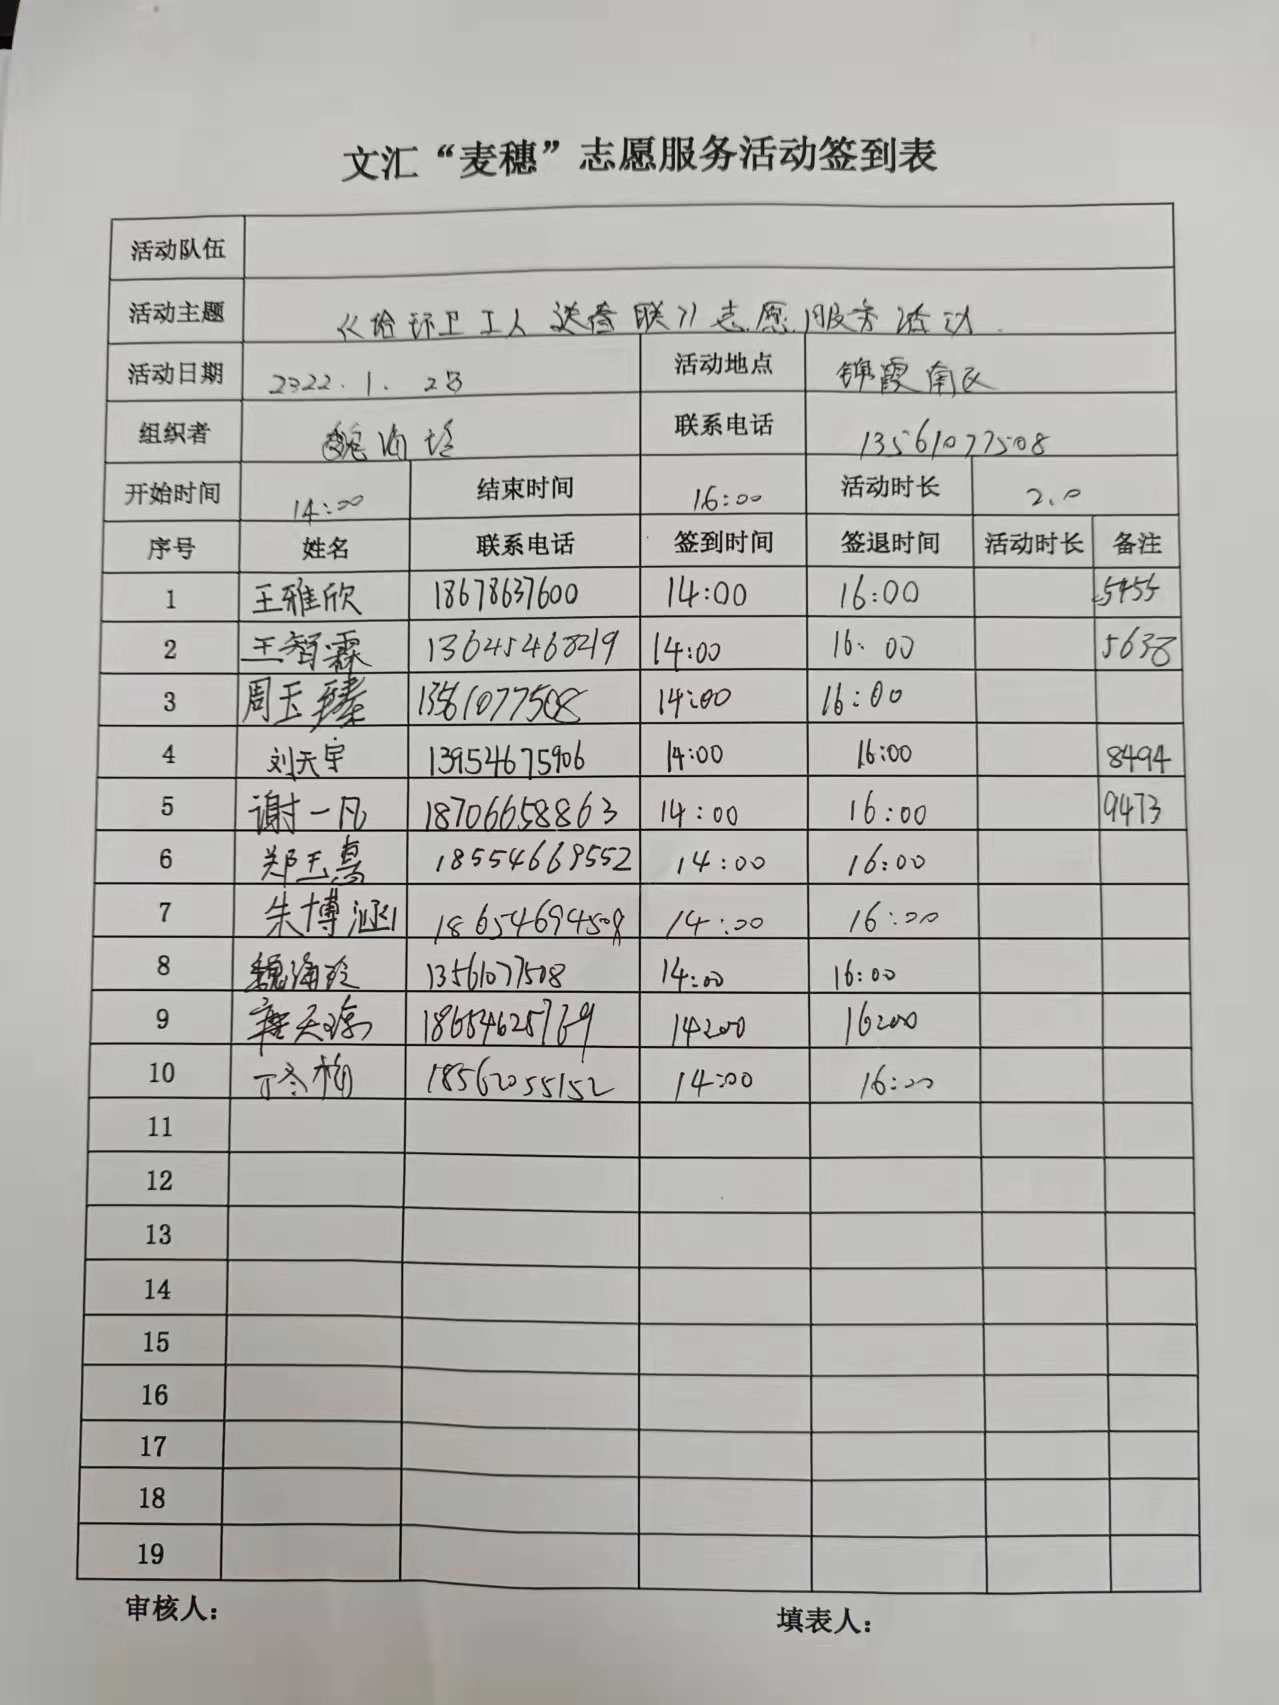 文汇“麦穗”志愿服务活动签到表
活动队伍
活动主题 《给环卫工人送春联》志愿服务活动.
活动日期 2022.1.23 活动地点 锦霞南区
组织者 魏海玲 联系电话 13561077508
开始时间 14:00 结束时间 16:00 活动时长 2.0
序号 姓名 联系电话 签到时间 签退时间 活动时长 备注
1 王雅欣 18678637600 14:00 16:00 5455
2 王智霖 13645468219 14:00 16:00 5638
3 周玉臻 13561077508 14:00 16:00
4 刘天宇 13954675906 14:00 16:00 8494
5 谢一凡 18706658863 14:00 16:00 9473
6 郑玉 18554669552 14:00 16:00
7 朱博涵 18654694508 14:00 16:00
8 魏海玲 13561077508 14:00 16:00
9 14:00 16:00
10 丁冬梅 18562055152 14:00 16:00
11
12
13
14
15
16
17
18
19
审核人： 填表人：